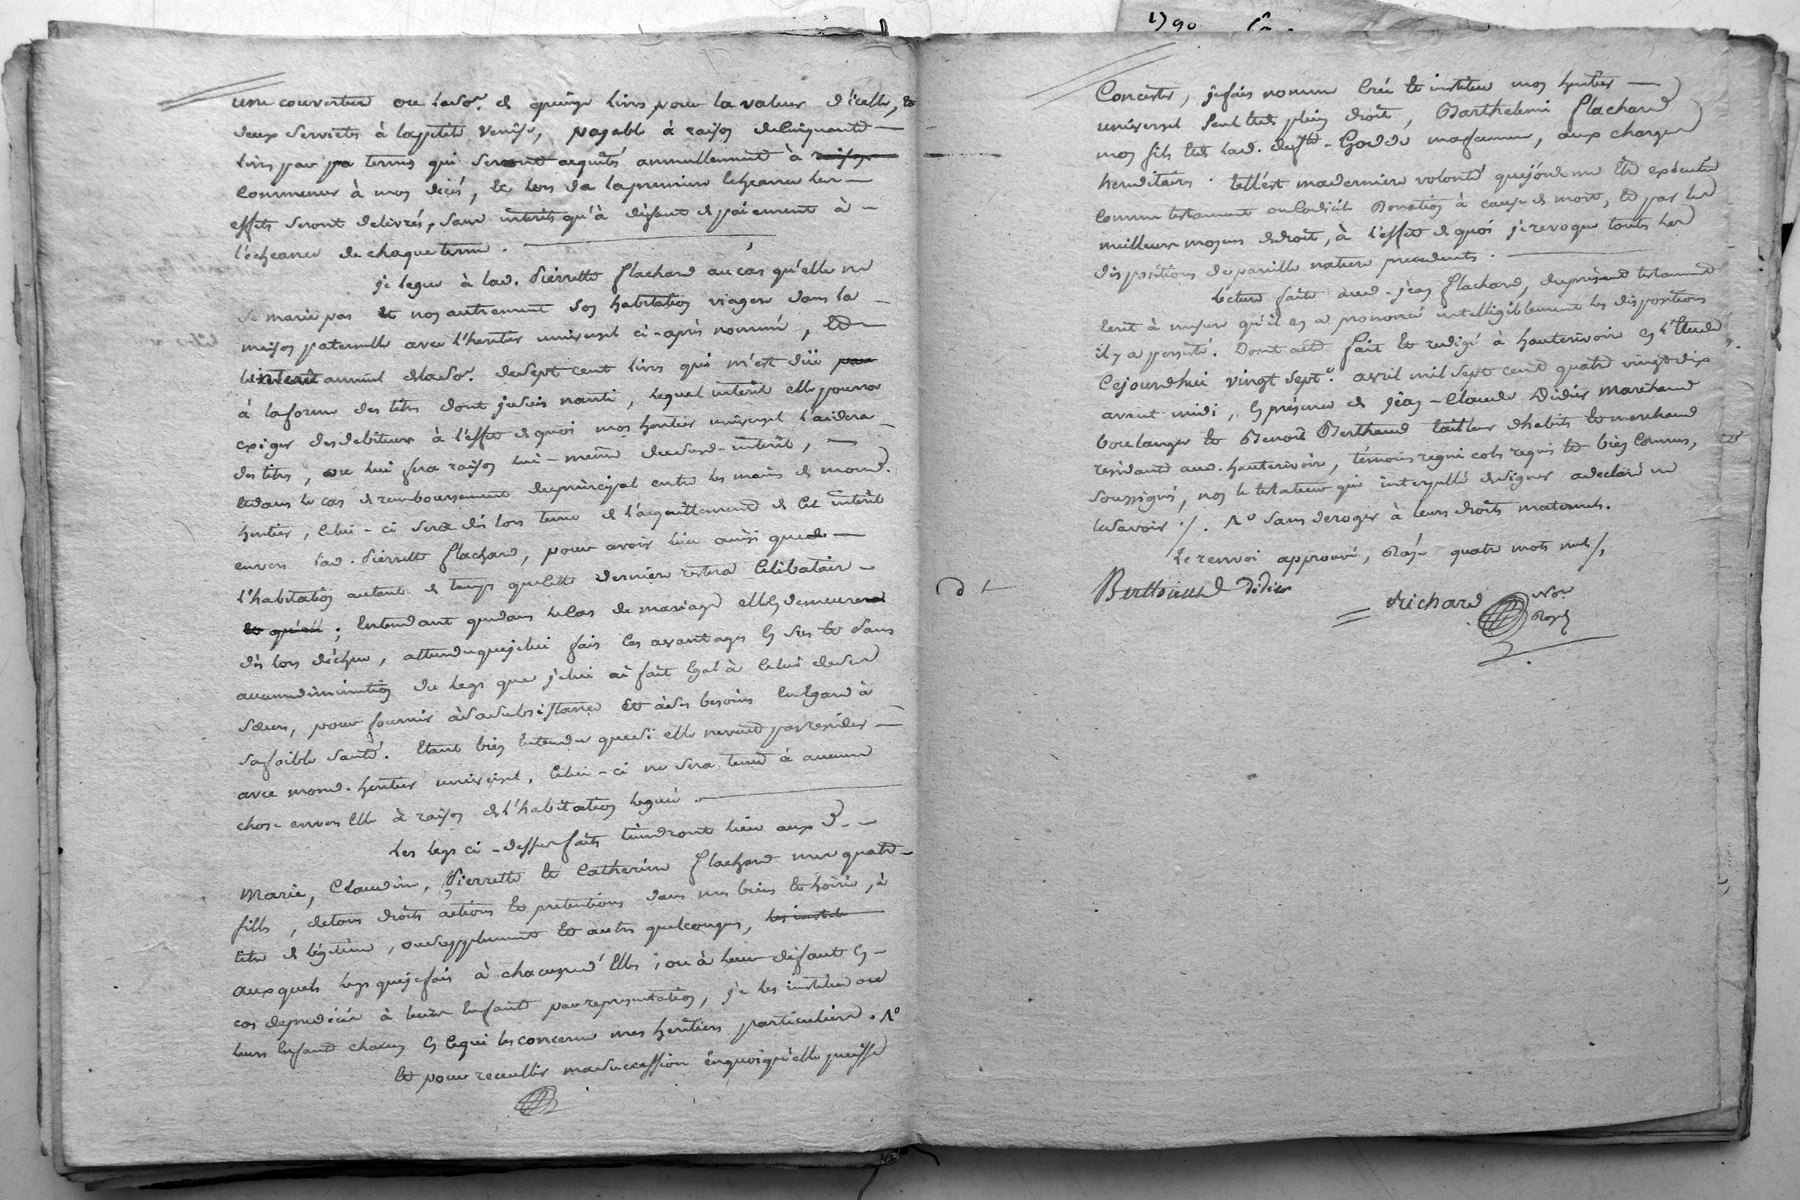 1790
une couverture ou lad. so.e de quinze livres pour la valeur d'icelle, et
deux serviettes à la petite venise, payable à raison de cinquante
livres par pa terme qui seront acquités annuellement à raison
commencer à mon décès, et lors de la premiere echeance les
effets seront delivrés, sans interêts qu'à défaut de paiement à
l'échéance de chaque terme.
je legue à lad. Pierrette flachard au cas qu'elle ne
se marie pas et non autrement son habitation viagere dans la
maison paternelle avec l'heritier universel ci-après nommé, et
l'interêt annuel de la so.e de sept cent livres qui m'est düe par
à la forme des titres dont je suis nanti, lequel interêt elle pourra
exiger des debiteurs à l'effet de quoi mon heritier universel l'aidera
des titres, ou lui fera raison lui-même dud. interêt,
et dans le cas de remboursement du principal entre les mains de mond.
heritier, celui-ci sera dès lors tenu de l'acquittement de cet interêt
envers lad. Pierrette flachard, pour avoir lieu ainsi que
l'habitation autant de temps que cette derniere restera celibataire
et qu'elle ; entendant que dans le cas de mariage elle en demeurera
dès lors déchue, attendu que je lui fais ces avantages en sus et sans
aucune diminution du legs que je lui ai fait egal à celui de ses
sœurs, pour fournir à sa subsistance et à ses besoins eu egard à
sa foible santé. Etant bien entendu que si elle ne veut pas resider
avec mond. heritier universel, celui-ci ne sera tenu à aucune
chose envers elle à raison de l'habitation leguée.
Les legs ci-dessus faits tiendront lieu aux d.
Marie, Claudine, Pierrette et Catherine flachard mes quatre
filles, de tous droits actions et pretentions dans mes biens et hoirie, à
titre de légitime, ou supplement et autres quelconques, les instit
auxquels legs que je fais à chacune d'elles ; ou à leur défaut en
cas de predécès à leurs enfants par representation, je les institue ou
leurs enfants chacun en ce qui les concerne mes heritiers particuliers.
et pour recueillir ma succession en quoi qu'elle puisse
Consister, je fais nomme crée et institue mon heritier
universel seul et de plein droit, Barthelemi flachard
mon fils et de lad. deffte Goddé ma femme, aux charges
hereditaires. telle est ma derniere volonté que j'ordonne être executée
comme testament ou codicil donation à cause de mort, et par les
meilleurs moyens de droit, à l'effet de quoi je revoque toutes les
dispositions de pareille nature precedentes.
Lecture faite aud. jean flachard, du présent testament
ecrit à mesure qu'il en a prononcé intelligiblement les dispositions
il y a persisté. Dont acte fait et redigé à hauterivoire en l'Etude
Cejourdhui vingt sept.e avril mil sept cent quatre vingt dix
avant midi, en présence de jean-Claude Didier marchand
boulanger et Benoît Berthaud tailleur d'habits et marchand
residants aud. hauterivoire, témoins requis et bien connus,
soussignés, non le testateur qui interpellé de signer a declaré ne
le savoir ./. sans deroger à leurs droits maternels.
Le renvoi approuvé, Rayé quatre mots nuls/.
Berthaud Didier
Richard No.re
Royal